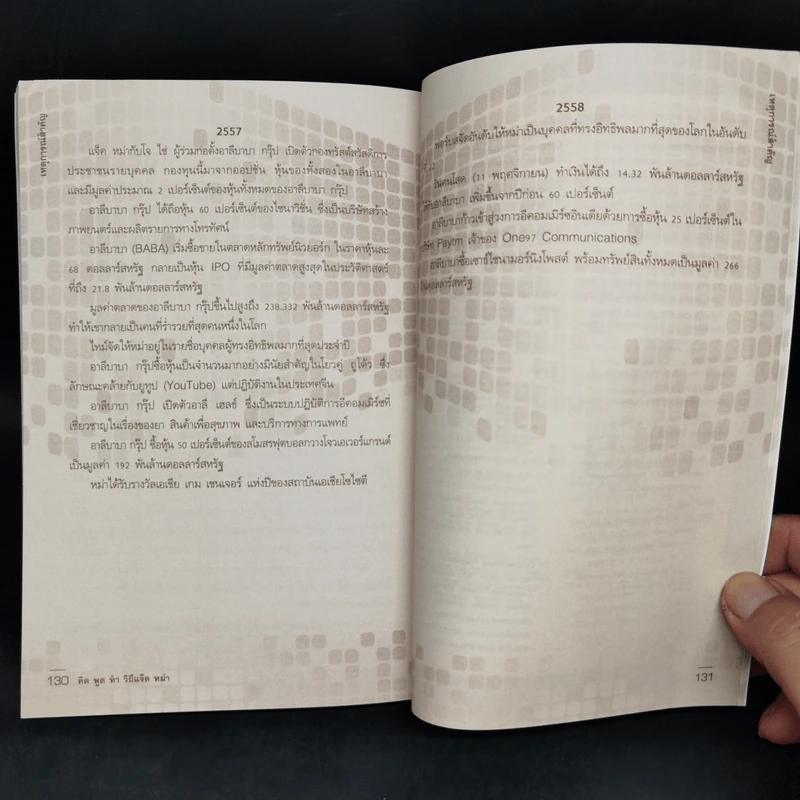 เหตุการณ์สำคัญ
2557
แจ็ค หม่ากับโจ ไช่ ผู้ร่วมก่อตั้งอาลีบาบา กรุ๊ป เปิดตัวกองทรัสต์สวัสดิการ
ประชาชนรายบุคคล กองทุนนี้มาจากออปชั่น หุ้นของทั้งสองในอาลีบาบา
และมีมูลค่าประมาณ 2 เปอร์เซ็นต์ของหุ้นทั้งหมดของอาลีบาบา กรุ๊ป
อาลีบาบา กรุ๊ป ได้ถือหุ้น 60 เปอร์เซ็นต์ของไชนาวิชั่น ซึ่งเป็นบริษัทสร้าง
ภาพยนตร์และผลิตรายการทางโทรทัศน์
อาลีบาบา (BABA) เริ่มซื้อขายในตลาดหลักทรัพย์นิวยอร์ก ในราคาหุ้นละ
68 ดอลลาร์สหรัฐ กลายเป็นหุ้น IPO ที่มีมูลค่าตลาดสูงสุดในประวัติศาสตร์
ที่ถึง 21.8 พันล้านดอลลาร์สหรัฐ
มูลค่าตลาดของอาลีบาบา กรุ๊ปขึ้นไปสูงถึง 238.332 พันล้านดอลลาร์สหรัฐ
ทำให้เขากลายเป็นคนที่ร่ำรวยที่สุดคนหนึ่งในโลก
ไทม์จัดให้หม่าอยู่ในรายชื่อบุคคลผู้ทรงอิทธิพลมากที่สุดประจำปี
อาลีบาบา กรุ๊ปซื้อหุ้นเป็นจำนวนมากอย่างมีนัยสำคัญในโยวคู่ ถูโต้ว ซึ่ง
ลักษณะคล้ายกับยูทูป (YouTube) แต่ปฏิบัติงานในประเทศจีน
อาลีบาบา กรุ๊ป เปิดตัวอาลี เฮลธ์ ซึ่งเป็นระบบปฏิบัติการอีคอมเมิร์ซที่
เชี่ยวชาญในเรื่องของยา สินค้าเพื่อสุขภาพ และบริการทางการแพทย์
อาลีบาบา กรุ๊ป ซื้อหุ้น 50 เปอร์เซ็นต์ของสโมสรฟุตบอลกวางโจวเอเวอร์แกรนด์
เป็นมูลค่า 192 พันล้านดอลลาร์สหรัฐ
หม่าได้รับรางวัลเอเชีย เกม เชนเจอร์ แห่งปีของสถาบันเอเชียโซไซตี
130 คิด พูด ทำ วิถีแจ็ค หม่า
เหตุการณ์สำคัญ
2558
ฟอร์บสจัดอันดับให้หม่าเป็นบุคคลที่ทรงอิทธิพลมากที่สุดของโลกในอันดับ
ที่ 22
วันคนโสด (11 พฤศจิกายน) ทำเงินได้ถึง 14.32 พันล้านดอลลาร์สหรัฐ
อาลีบาบา เพิ่มขึ้นจากปีก่อน 60 เปอร์เซ็นต์
อาลีบาบาก้าวเข้าสู่วงการอีคอมเมิร์ซอินเดียด้วยการซื้อหุ้น 25 เปอร์เซ็นต์ใน
Paytm เจ้าของ One97 Communications
อาลีบาบาซื้อเซาธ์ไชนามอร์นิงโพสต์ พร้อมทรัพย์สินทั้งหมดเป็นมูลค่า 266
ดอลลาร์สหรัฐ
131